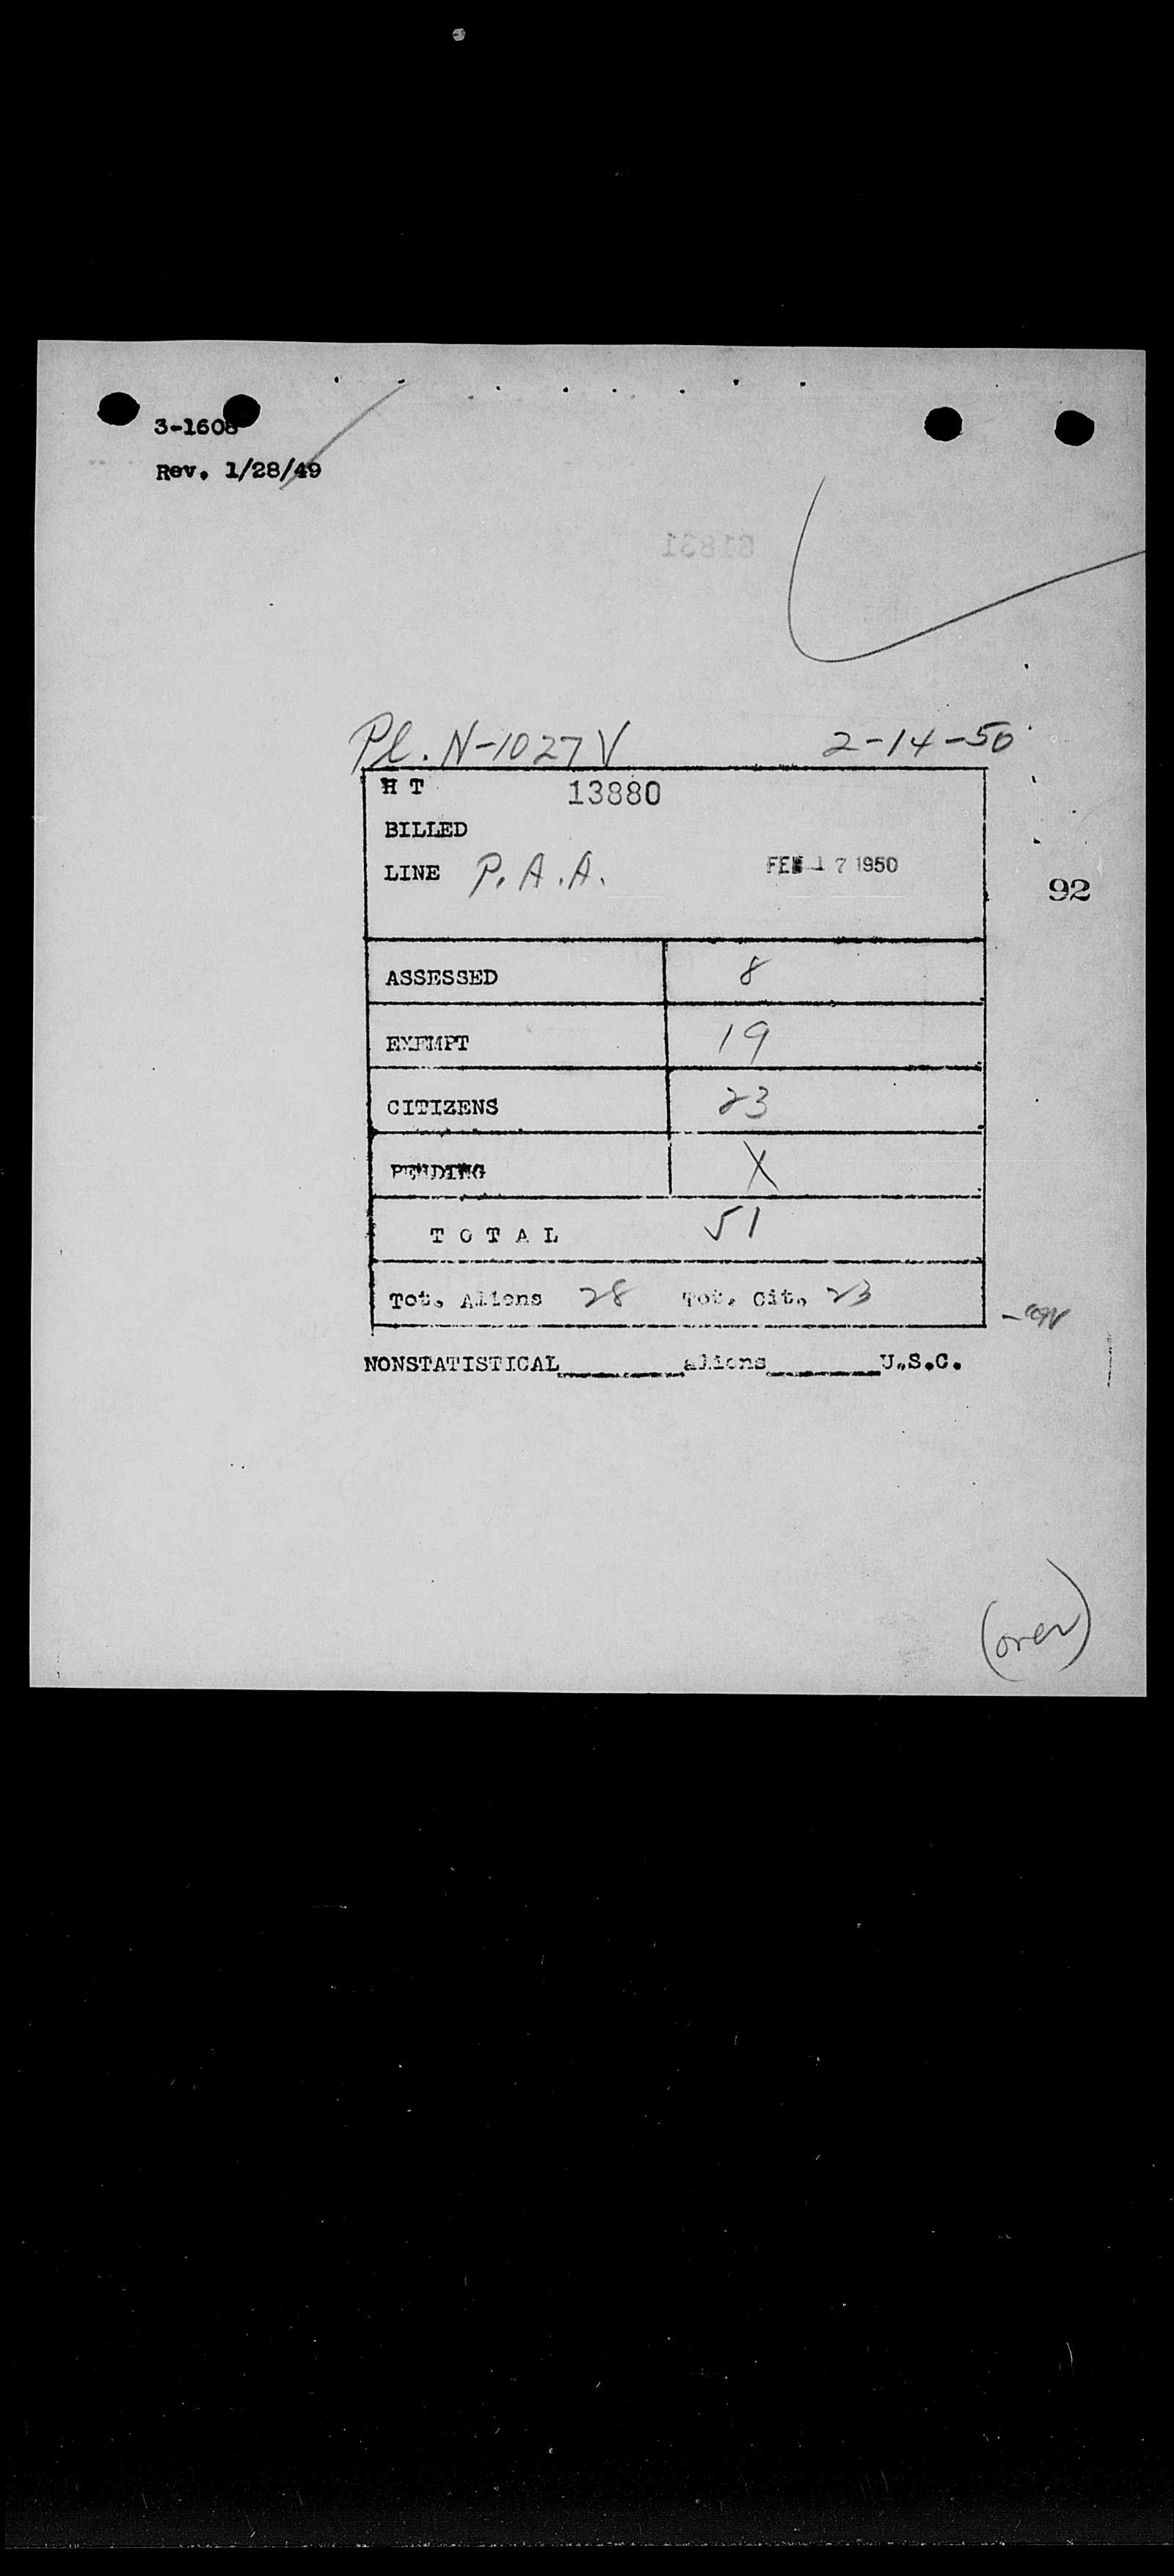 3-1608
Rev. 1/28/49
Pl. N-1027V 2-14-50
H T 13880
BILLED
LINE P.A.A. FEB 17 1950
92
ASSESSED 8
EXEMPT 19
CITIZENS 23
PENDING X
T O T A L 51
Tot. Aliens 28 Tot. Cit. 23
NONSTATISTICAL________aliens________U.S.C.
(over)